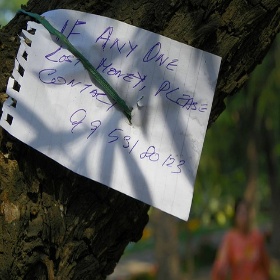 IF ANY ONE
LOST MONEY, PLEASE
CONTACT
99 531 20123